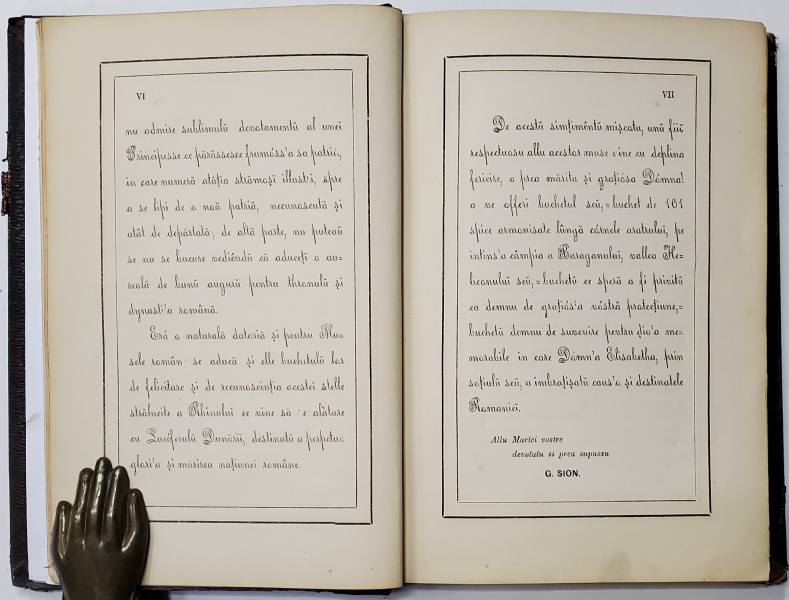 VI
nu admire sublimulŭ devotamentŭ al uneĭ
Principesse ce părăssesce frumóss'a sa patriĭ,
in care numeră atăția strămoșĭ illustri, spre
a se lipi de o noă patriă, necunoscută și
atât de depărtată; de altă parte, nu puteaŭ
se nu se bucure vediêndŭ că aduceți o au-
reolă de bunŭ augurŭ pentru thronulŭ și
dynasti'a română.
Eră o naturală datoriă și pentru Mu-
sele române se aducă și elle buchetulŭ lor
de felicitare și de recunoscinția acestei stelle
strălucite a Rhinului ce vine să se alăture
cu Luciferulŭ Dunării, destinatŭ a perpetuà
glori'a și mărirea națiunei române.
VII
De acestŭ simțimêntŭ mișcatu, unŭ fiiŭ
respectuosu allu acestor muse vine cu deplina
fericire, o prea mărita și grațiósa Dómna!
a ve offeri buchetul seŭ,=buchet de 101
spice armonisate lângă córnele aratrului, pe
intins'a câmpia a Baraganului, vallea He-
liconului seŭ,=buchetŭ ce speră a fi privitŭ
ca demnu de grațiós'a vóstră protecțiune,=
buchetŭ demnu de suvenire pentru dio'a me-
morabile in care Dómn'a Elisabetha, prin
soțiulŭ seŭ, a imbrațișatŭ caus'a și destinatele
Romaniei.
Allu Mariei vostre
devotatu si prea supussu
G. SION.